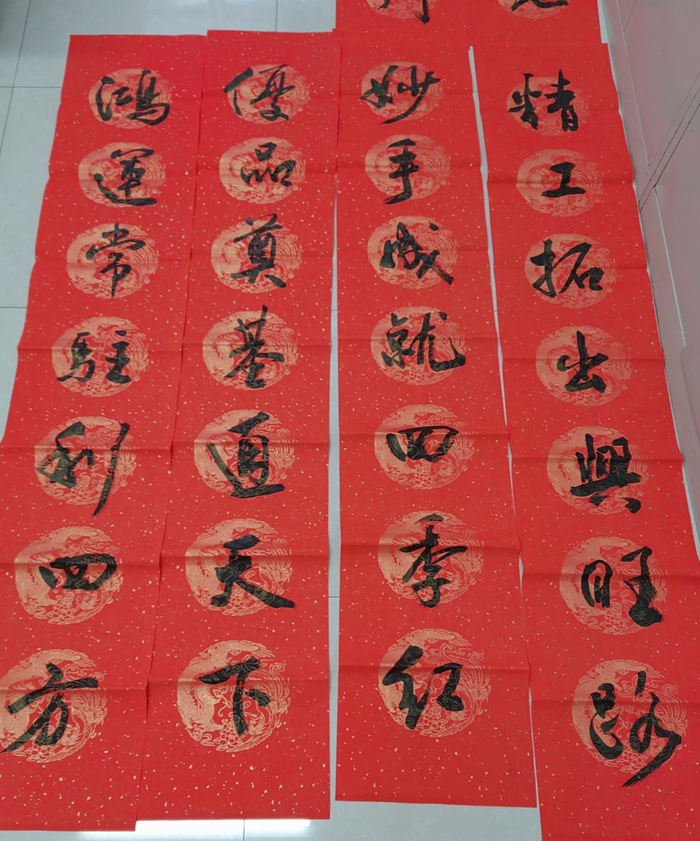 精工拓出興旺路
妙手成就四季紅
優品奠基通天下
鴻運常駐利四方